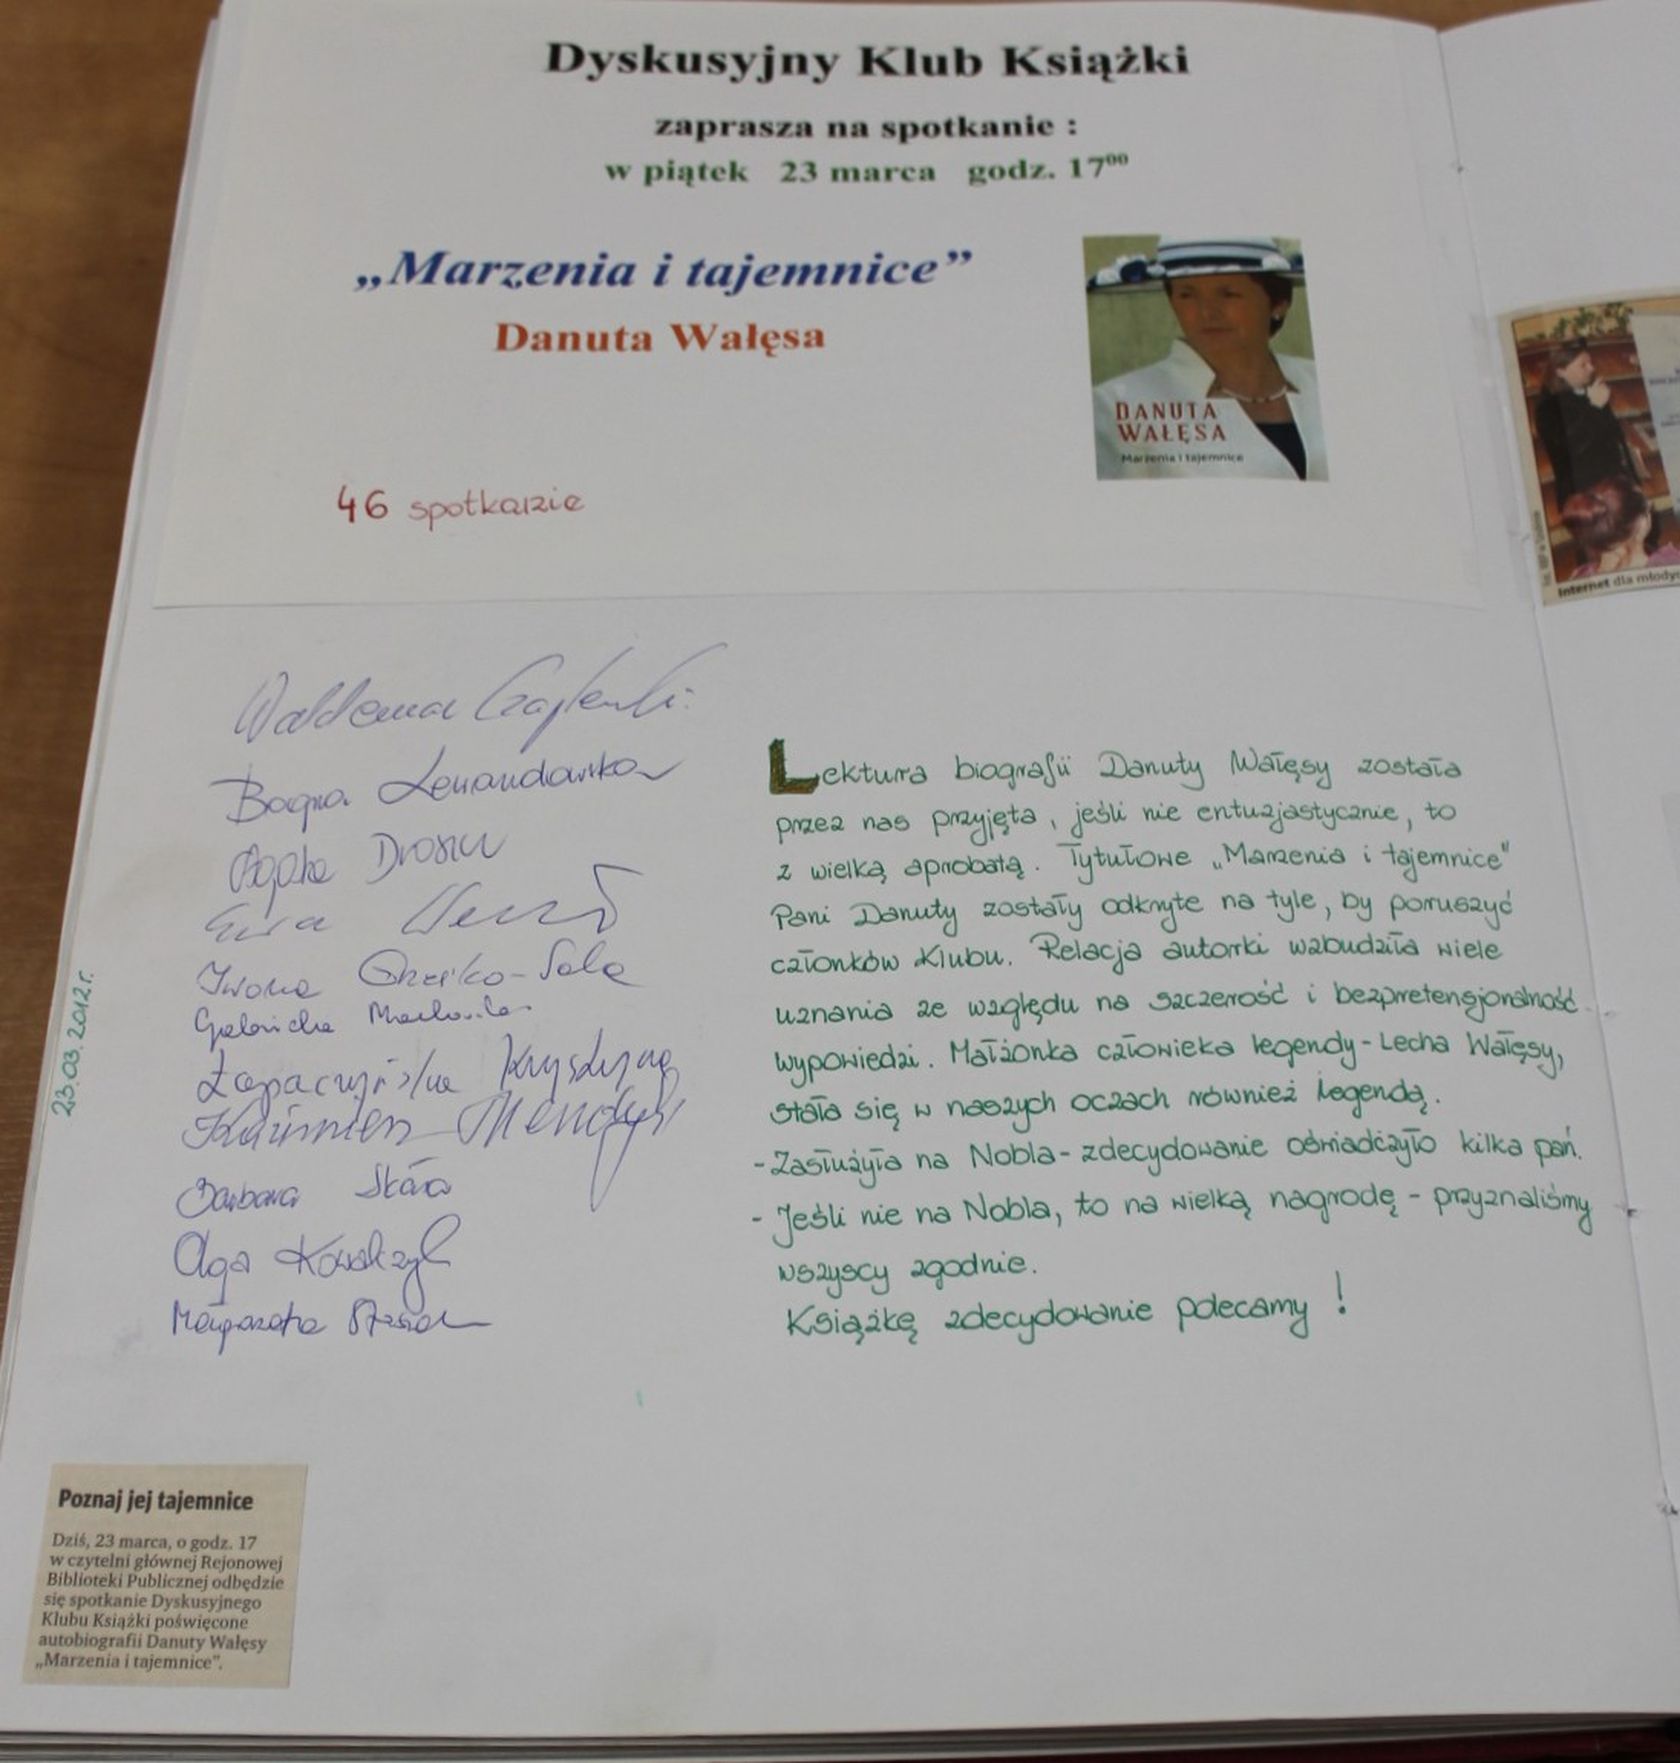 Dyskusyjny Klub Książki
zaprasza na spotkanie :
w piątek 23 marca godz. 17⁰⁰
„Marzenia i tajemnice”
Danuta Wałęsa
DANUTA
WAŁĘSA
Marzenia i tajemnice
46 spotkanie
Internet dla młodych
23.03.2012 r.
Waldemar
Lewandowska
Agata
Ewa
Iwona
Krystyna
Kazimierz Mendyk
Barbara
Olga Kowalczyk
Małgorzata
Lektura biografii Danuty Wałęsy została
przez nas przyjęta, jeśli nie entuzjastycznie, to
z wielką aprobatą. Tytułowe „Marzenia i tajemnice”
Pani Danuty zostały odkryte na tyle, by poruszyć
członków Klubu. Relacja autorki wzbudziła wiele
uznania ze względu na szczerość i bezpretensjonalność
wypowiedzi. Małżonka człowieka legendy - Lecha Wałęsy,
stała się w naszych oczach również legendą.
- Zasłużyła na Nobla - zdecydowanie oświadczyło kilka pań.
- Jeśli nie na Nobla, to na wielką nagrodę - przyznaliśmy
wszyscy zgodnie.
Książkę zdecydowanie polecamy !
Poznaj jej tajemnice
Dziś, 23 marca, o godz. 17
w czytelni głównej Rejonowej
Biblioteki Publicznej odbędzie
się spotkanie Dyskusyjnego
Klubu Książki poświęcone
autobiografii Danuty Wałęsy
„Marzenia i tajemnice”.